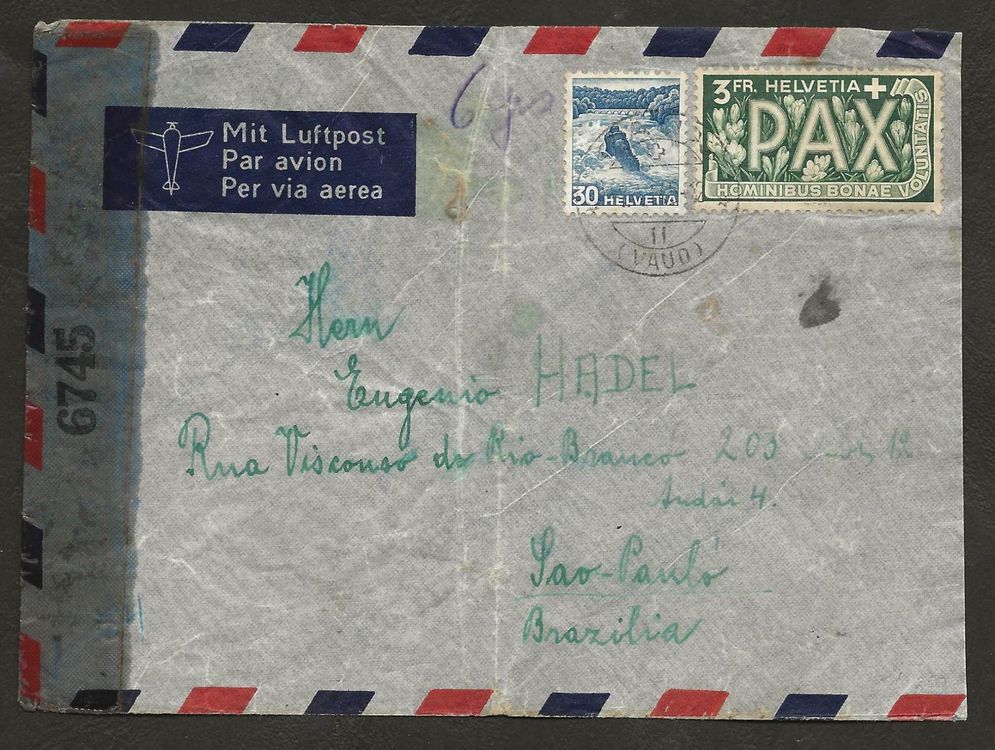 6 grs
Mit Luftpost
Par avion
Per via aerea
30 HELVETIA
3 FR. HELVETIA
PAX
HOMINIBUS BONAE VOLUNTATIS
II
(VAUD)
6745
Hern
Eugenio HADEL
Rua Visconso de Rio-Branco 203 12
Andár 4.
Sao-Pauló
Brazilia